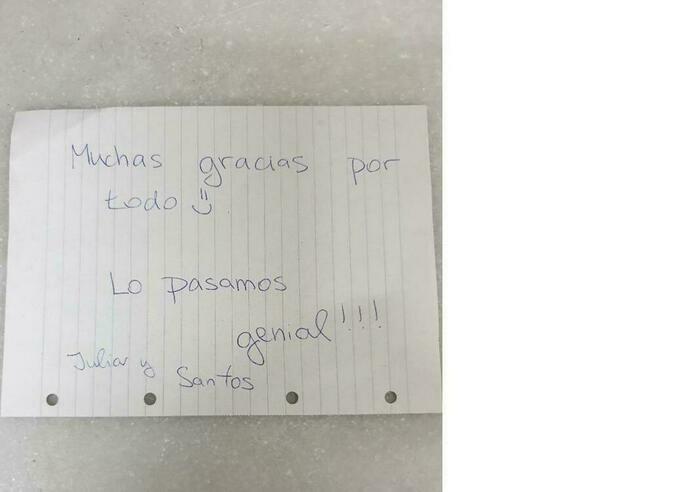 Muchas gracias por
todo
Lo pasamos
genial!!!
Julia y
Santos